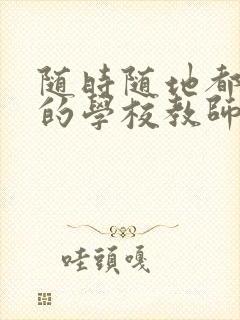 随時随地都
的學校教師
哇頭嘎